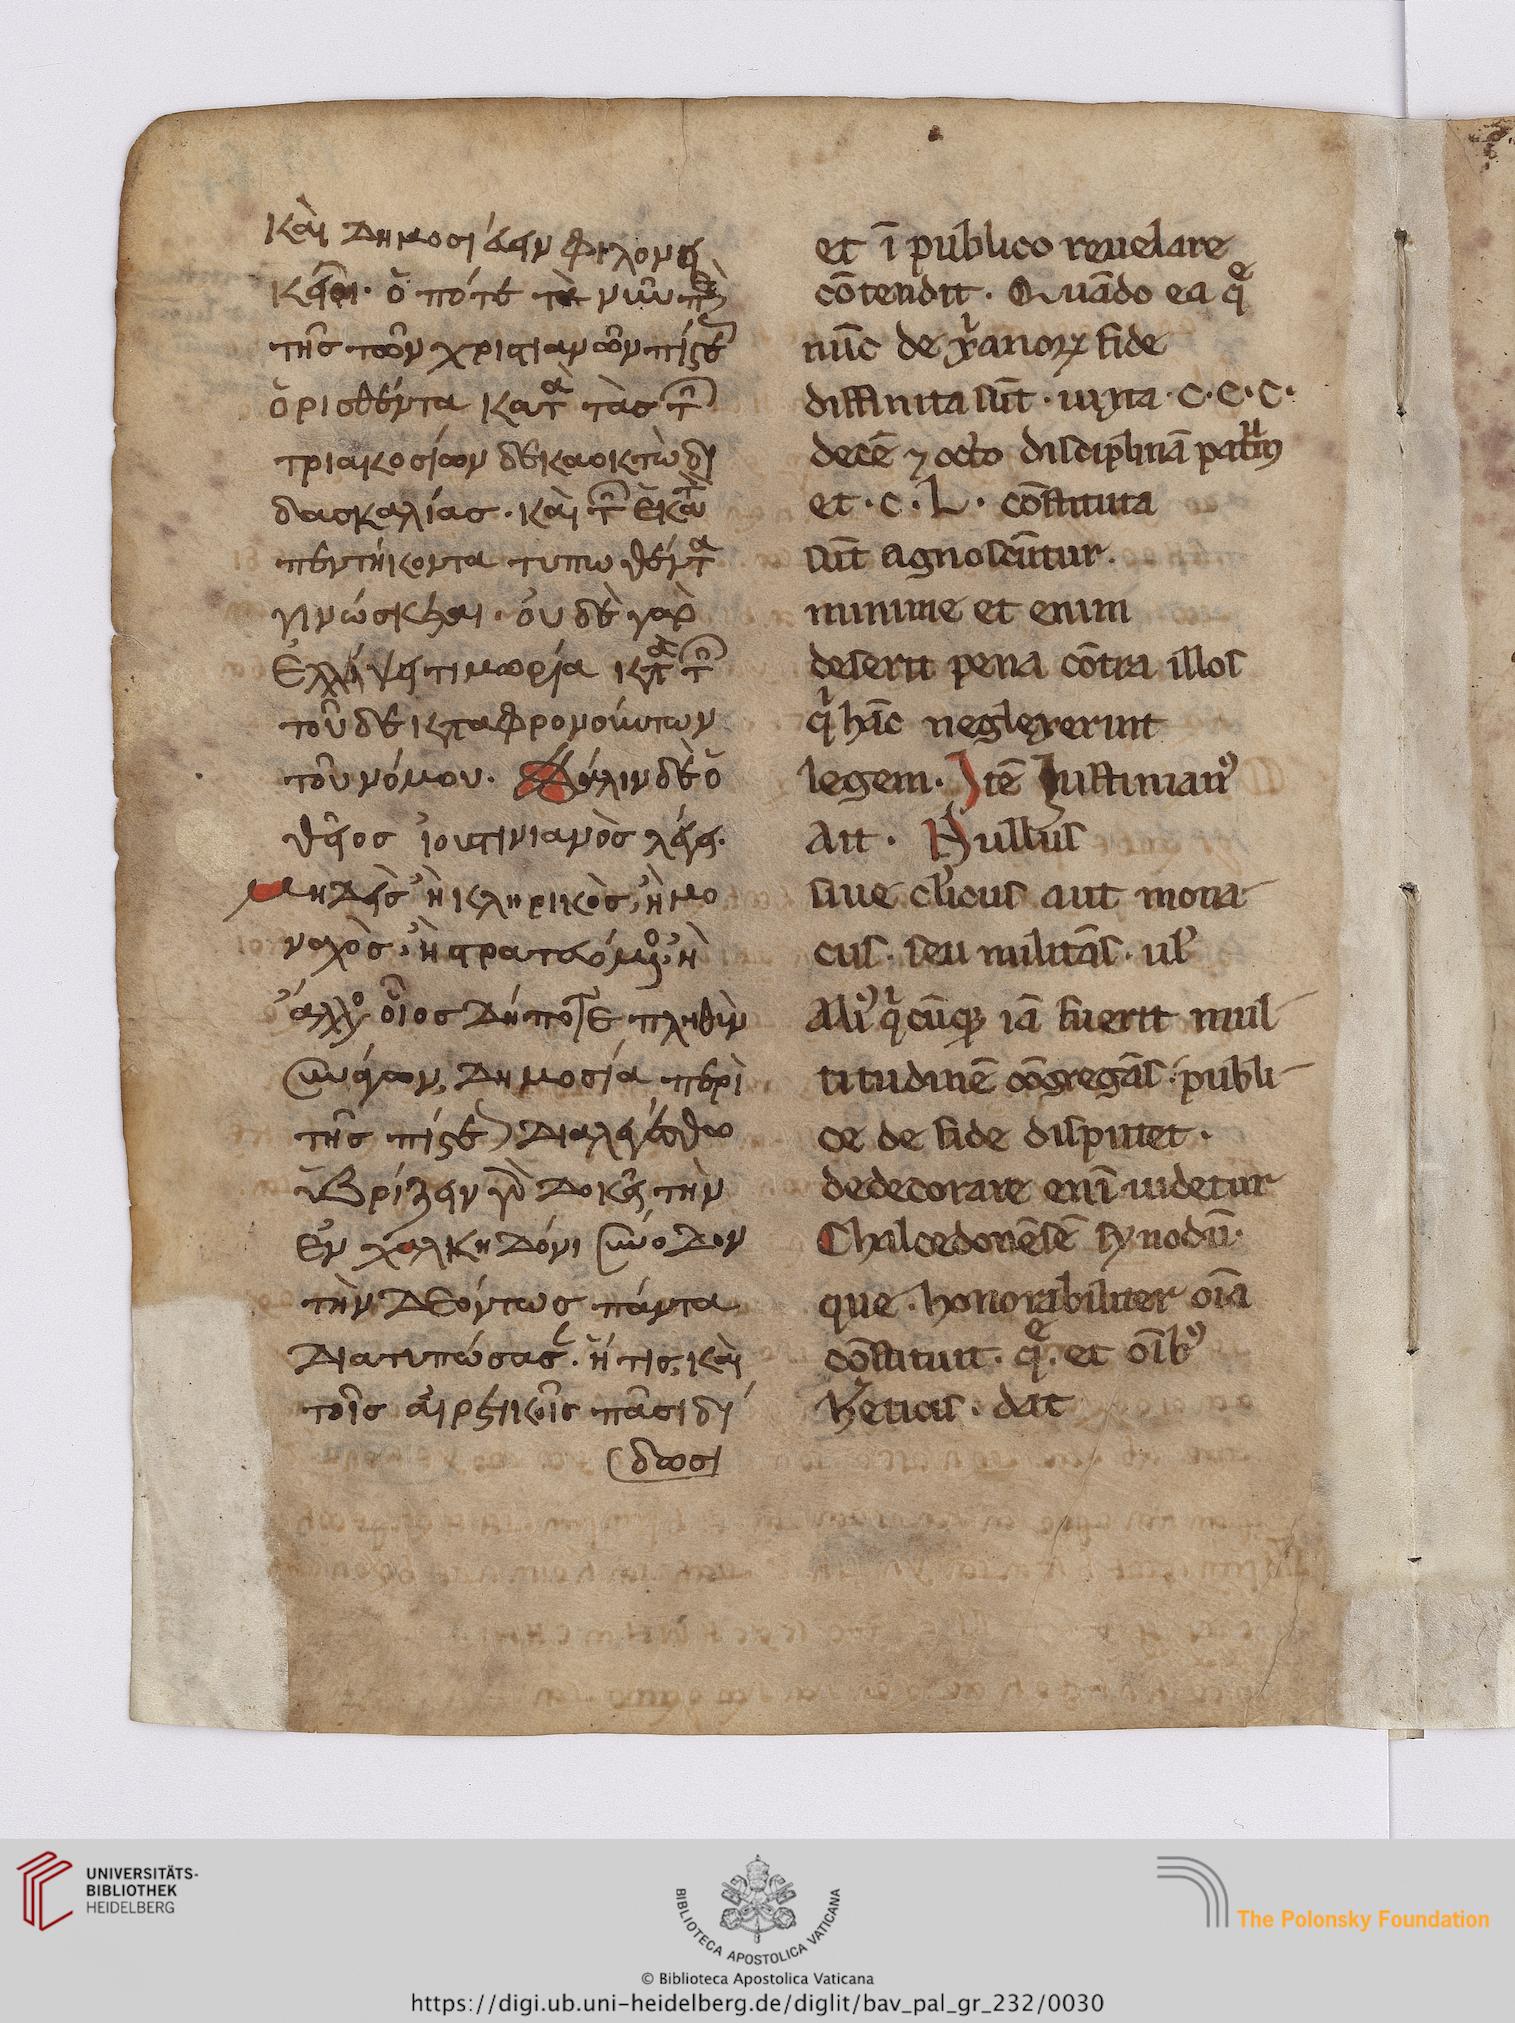 Κὰι δημοσιέυειν φιλονει
κεῖσθαι· ὁ πότε τὰ νῦν περὶ
τῆς τῶν χριστιανῶν πίστεως
ὁρισθέντα κατὰ τὰς τῶν
τριακοσίων δέκα οκτὼ δι
δασκαλίας· κὰι τῶν ἑκατὸν
πεντήκοντα τυπωθέντα
γινώσκεται· ὀυδὲ γὰρ
ἐλλείψει τιμωρία κατὰ τῶν
τοῦδε καταφρονούντων
τοῦ νόμου· Πάλιν δὲ ὁ
θεῖος ἰουστινιανὸς λέγει·
Μηδεὶς ἢ κληρικὸς, ἢ μο
ναχὸς, ἢ στρατευόμενος, ἢ
ἄλλος ὁῖος δήποτε πλῆθυν
συνάγων, δημοσία περὶ
τῆς πίστεως διαλεγέσθω
ὑβρίζειν γὰρ δοκεῖ τὴν
ἐν χαλκηδόνι σύνοδον
τὴν δεόντως πάντα
διατυπώσασαν· ἥτις, κὰι
τοῖς ἁιρετικοῖς πᾶσι δί
δωσι
et ī publico reuelare
cōtendit · Quādo ea q̄
nūc de xp̄ianoꝝ fide
diffinita sūt · iuxta · C·C·C·
decē ⁊ octo disciplinā patrū
et · C · L · cōstituta
sūt agnoscūntur.
minime et enim
deserit pena cōtra illos
qͥ hāc neglexerunt
legem · Itē Iustinianꝰ
Ait · Nullus
siue cl̓icus aut mona-
cus · seu militās · ul̓
Aliꝰ qͥcūqꝫ iā fuerit mul-
titudinē cōgregās · publi-
ce de fide disputet ·
dedecorare enī uidetur
Chalcedonēsē synodū·
que · honorabiliter oīa
cōstituit · q̄ · et oībꝰ
Hеticis · dat
UNIVERSITÄTS-
BIBLIOTHEK
HEIDELBERG
BIBLIOTECA APOSTOLICA VATICANA
The Polonsky Foundation
© Biblioteca Apostolica Vaticana
https://digi.ub.uni-heidelberg.de/diglit/bav_pal_gr_232/0030